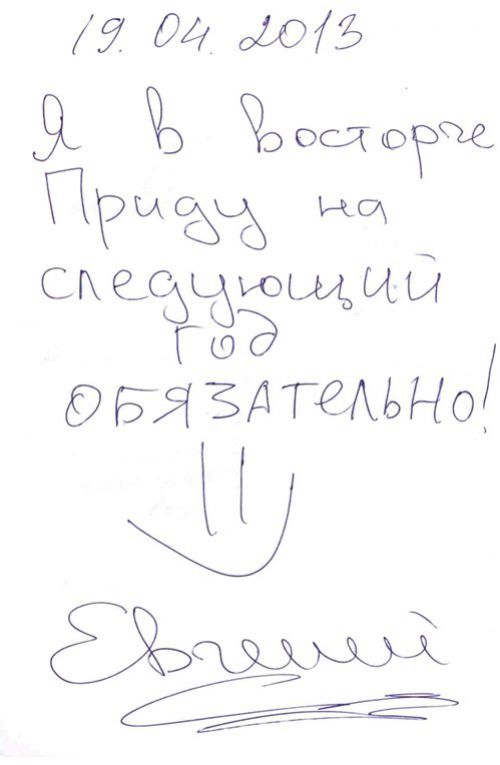 19.04.2013
Я в восторге
Приду на
следующий
год
ОБЯЗАТЕЛЬНО!
Евгений